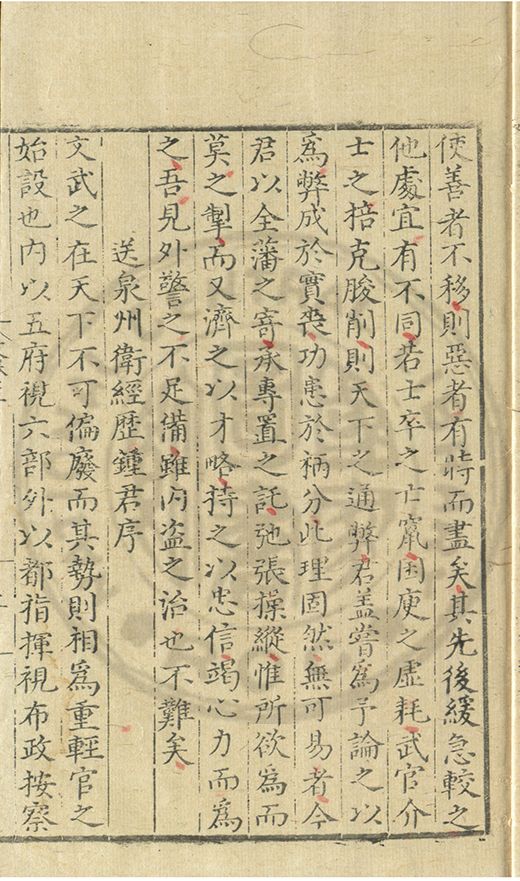 使善者不移則惡者有時而盡矣其先後緩急較之
他處宜有不同若士卒之亡竄囷庾之虛耗武官介
士之掊克朘削則天下之通弊君蓋嘗爲予論之以
爲弊成於實喪功患於柄分此理固然無可易者今
君以全藩之寄承專置之託弛張操縱惟所欲爲而
莫之掣而又濟之以才略持之以忠信竭心力而爲
之吾見外警之不足備雖內盗之治也不難矣
送泉州衛經歷鍾君序
文武之在天下不可偏廢而其勢則相爲重輕官之
始設也内以五府視六部外以都指揮視布政按察